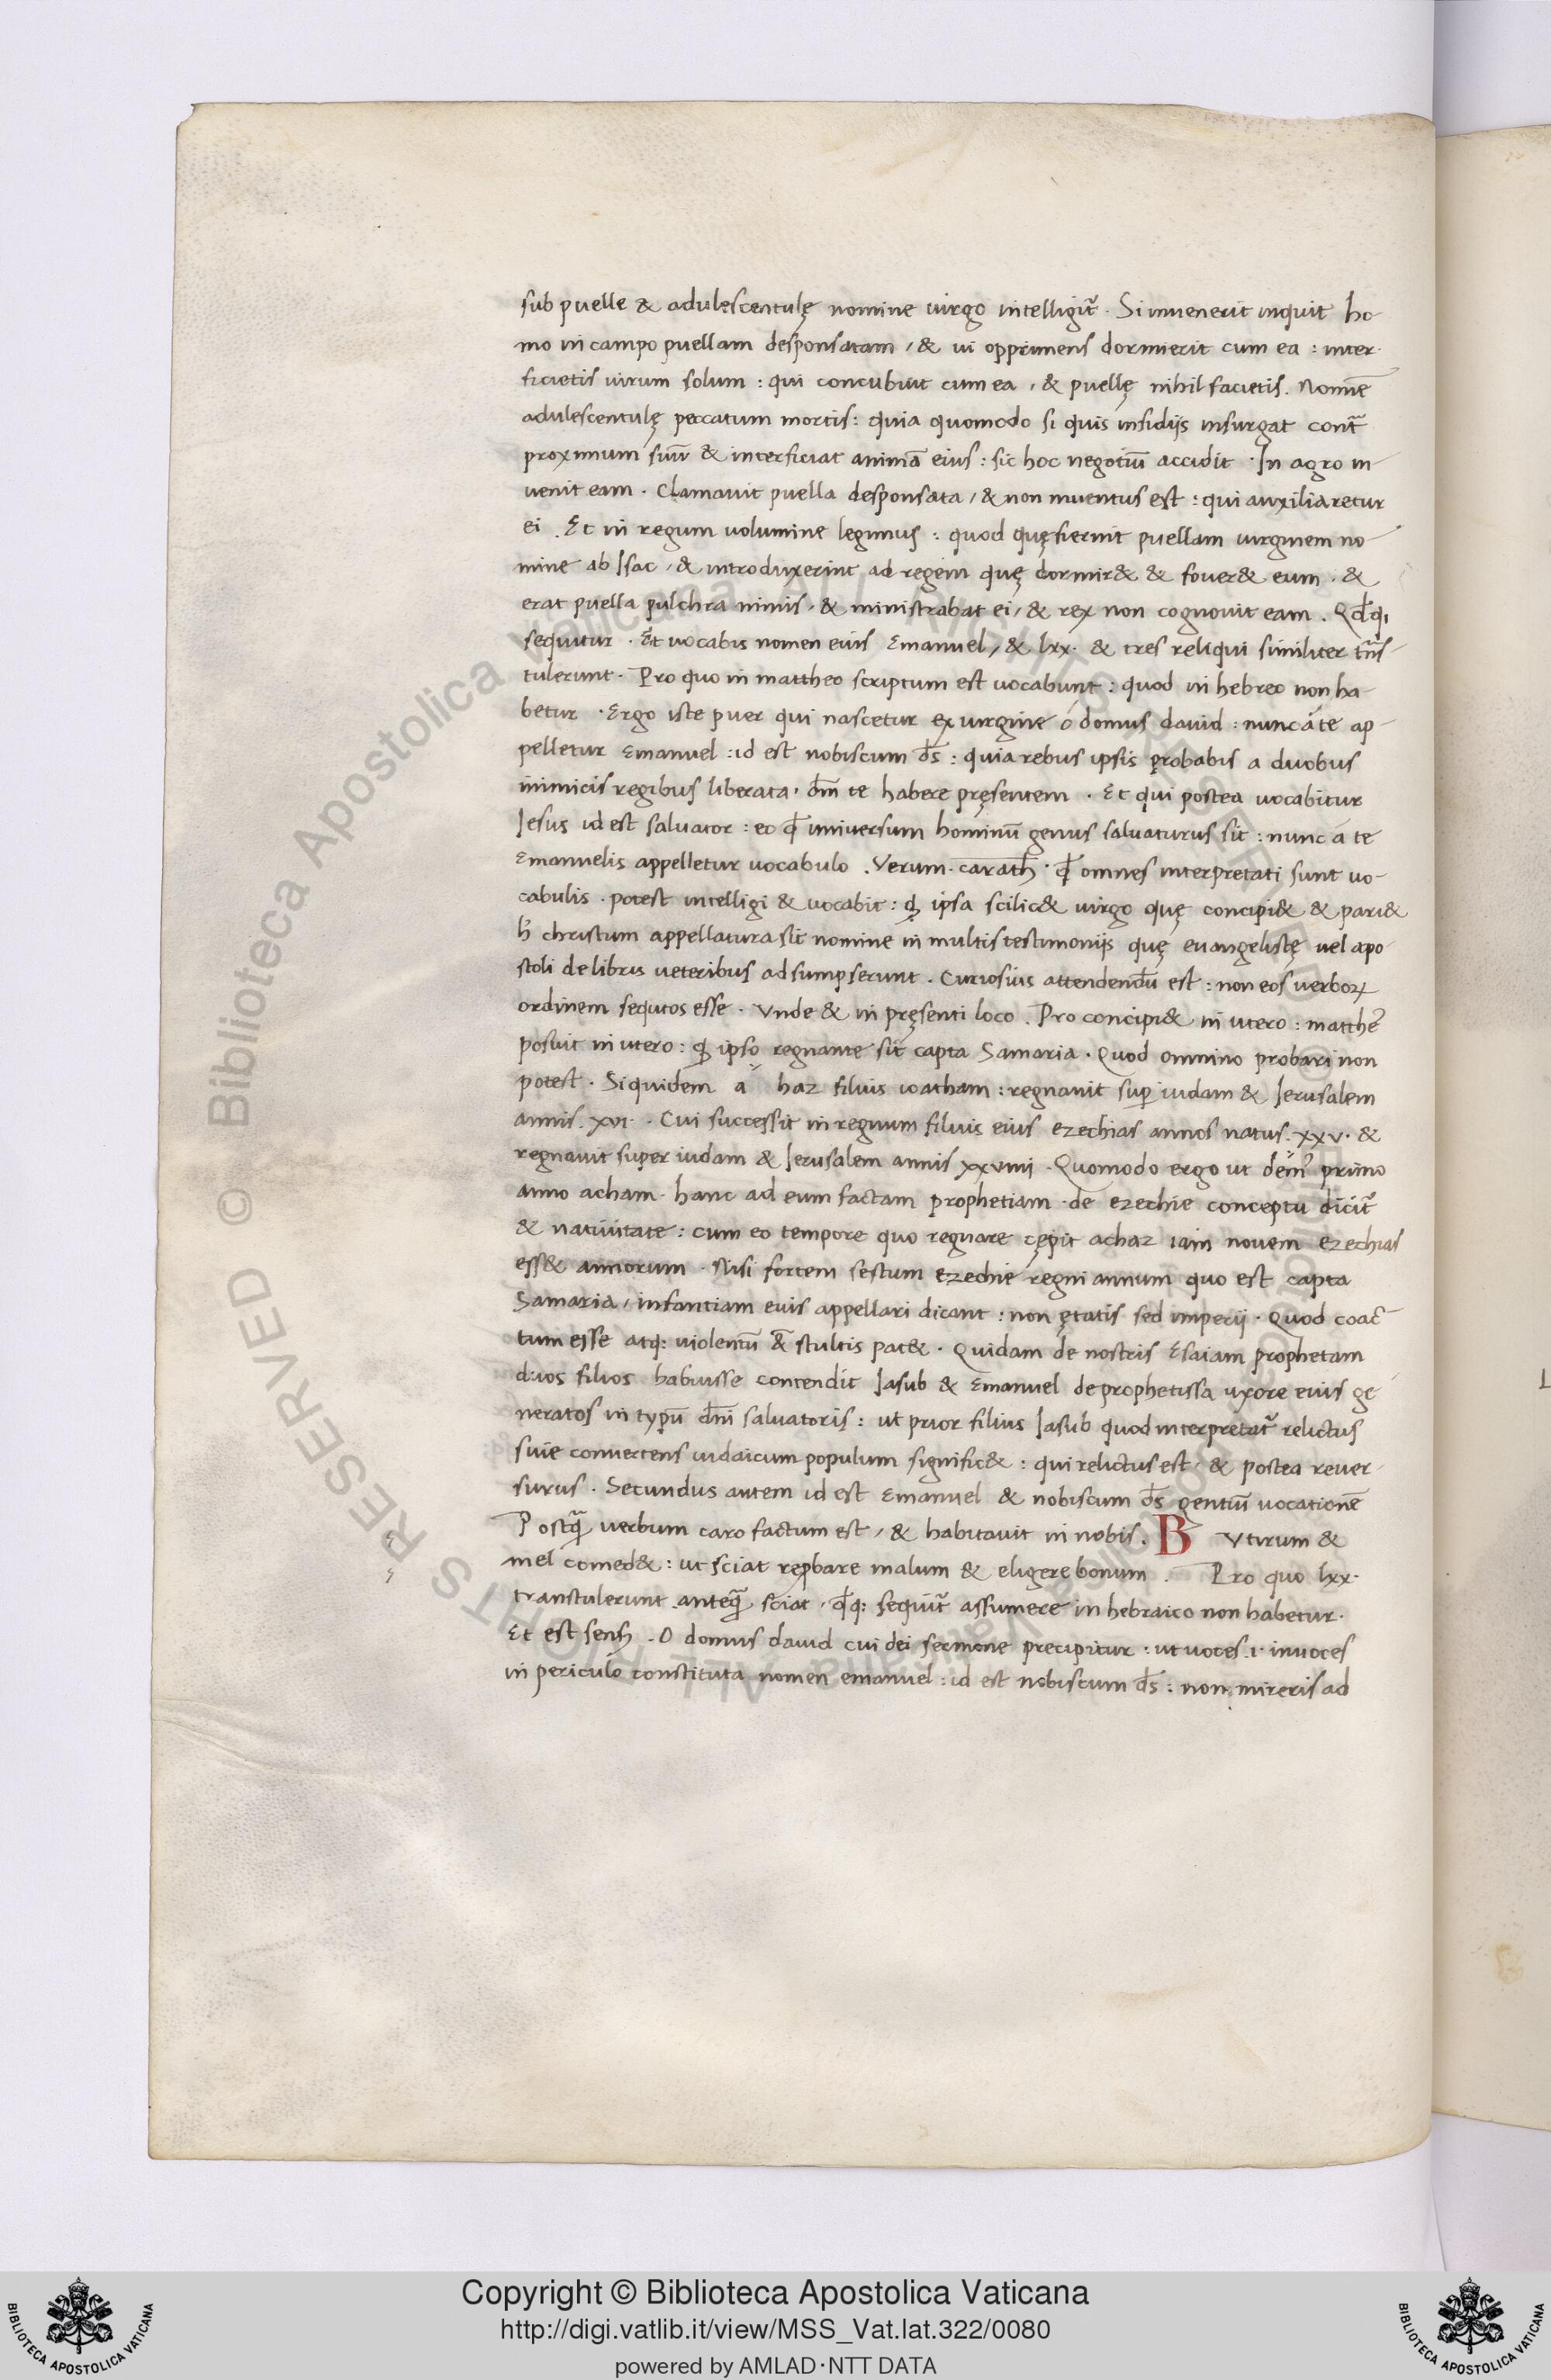 sub puelle & adulescentulę nomine uirgo intelligit᷑ . Si inuenerit inquit ho
mo in campo puellam desponsatam / & ui opprimens dormierit cum ea : inter
ficietis uirum solum : qui concubuit cum ea , & puellę nihil facietis . Nomē
adulescentulę peccatum mortis : quia quomodo si quis insidijs insurgat cont᷑
proximum suū & interficiat animā eius : sic hoc negotiū accidit . In agro in
uenit eam . Clamauit puella desponsata / & non inuentus est : qui auxiliaretur
ei . Et in regum uolumine legimus : quod quęsierint puellam uirginem no
mine ab Isac , & introduxerint ad regem quę dormir& & fouer& eum . &
erat puella pulchra nimis , & ministrabat ei , & rex non cognouit eam . Qd̄q;
sequitur . Et uocabis nomen eius Emanuel , & lxx . & tres reliqui similiter trās
tulerunt . Pro quo in mattheo scriptum est uocabunt : quod in hebreo non ha-
betur . Ergo iste puer qui nascetur ex uirgine o domus dauid : nunc a te ap-
pelletur Emanuel : id est nobiscum d̄s : quia rebus ipsis probabis a duobus
inimicis regibus liberata , dm̄ te habere pręsentem . Et qui postea uocabitur
Iesus id est saluator : eo qđ uniuersum hominū genus saluaturus sit : nunc a te
Emanuelis appelletur uocabulo . Verum . carath . qđ omnes interpretati sunt uo-
cabulis . potest intelligi & uocabit : ꝙ ipsa scilic& uirgo quę concipi& & pari&
ħ christum appellatura sit nomine in multis testimonijs quę euangelistę uel apo
stoli de libris ueteribus adsumpserunt . Curiosius attendendū est : non eos uerboꝝ
ordinem sequtos esse . Vnde & in pręsenti loco . Pro concipi& in utero : matthe᷑
posuit in utero : ꝙ ipso regnante sit capta Samaria . Quod omnino probari non
potest . Siquidem a haz filius ioatham : regnauit sup̄ iudam & Ierusalem
annis . xvi . . Cui successit in regnum filius eius ezechias annos natus . xxv . &
regnauit super iudam & Ierusalem annis xxviiii . Quomodo ergo ut dem᷑ primo
anno acham . hanc ad eum factam prophetiam . de ezechie conceptu dicit᷑
& natiuitate : cum eo tempore quo regnare cępit achaz iam nouem ezechias
ess& annorum . Nisi fortem sestum ezechie regni annum quo est capta
Samaria , infantiam eius appellari dicant : non ętatis sed imperij . Quod coac-
tum esse atq; uiolentū & stultis pat& . Quidam de nostris Esaiam prophetam
duos filios habuisse contendit Iasub & Emanuel de prophetissa uxore eius ge
neratos in typū dn̄i saluatoris : ut prior filius Iasub quod interpretat᷑ relictus
siue conuertens iudaicum populum signific& : qui relictus est , & postea reuer-
surus . Secundus autem id est Emanuel & nobiscum d̄s gentiū uocationē
Postq̄ uerbum caro factum est , & habitauit in nobis . B Vtirum &
mel comed& : ut sciat reꝓbare malum & eligere bonum . Pro quo lxx .
transtulerunt anteq̄ sciat . qđq; sequit᷑ assumere in hebraico non habetur .
Et est sens᷑ . O domus dauid cui dei sermone precipitur : ut uoces .i. inuoces
in periculo constituta nomen emanuel : id est nobiscum d̄s : non mireris ad
Copyright © Biblioteca Apostolica Vaticana
http://digi.vatlib.it/view/MSS_Vat.lat.322/0080
powered by AMLAD·NTT DATA